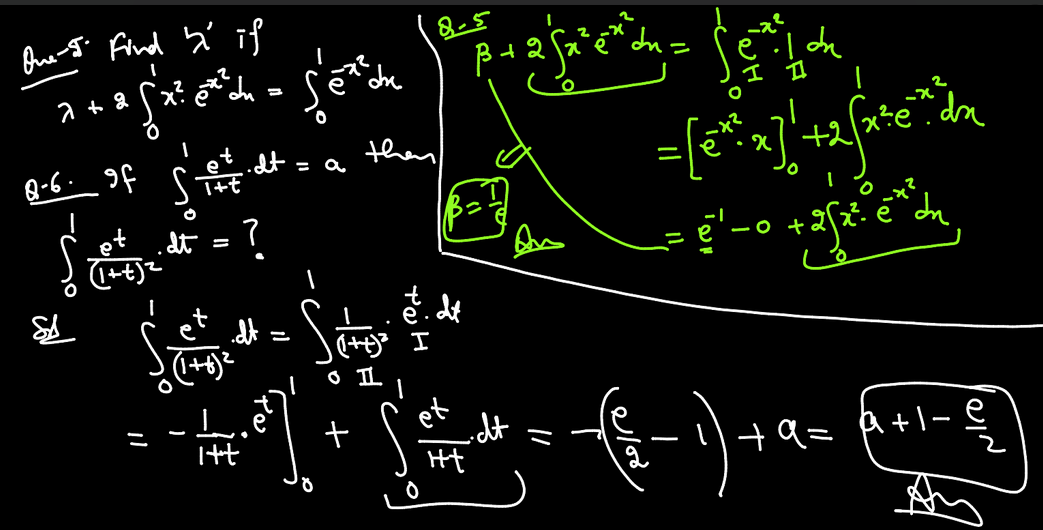 Que-5. Find 'λ' if
λ + 2 ∫₀¹ x². e^(-x²) dx = ∫₀¹ e^(-x²) dx
Q-6. If ∫₀¹ e^t/(1+t) . dt = a then
∫₀¹ e^t/(1+t)² . dt = ?
Sol
∫₀¹ e^t/(1+t)² . dt = ∫₀¹ 1/(1+t)² . e^t . dt
II I
= - 1/(1+t) . e^t ]₀¹ + ∫₀¹ e^t/(1+t) . dt = -(e/2 - 1) + a = a + 1 - e/2
Ans
Q-5
β + 2 ∫₀¹ x² e^(-x²) dx = ∫₀¹ e^(-x²) . 1 dx
I II
= [e^(-x²) . x]₀¹ + 2 ∫₀¹ x² . e^(-x²) . dx
β = 1/e
Ans
= e^(-1) - 0 + 2 ∫₀¹ x² . e^(-x²) dx